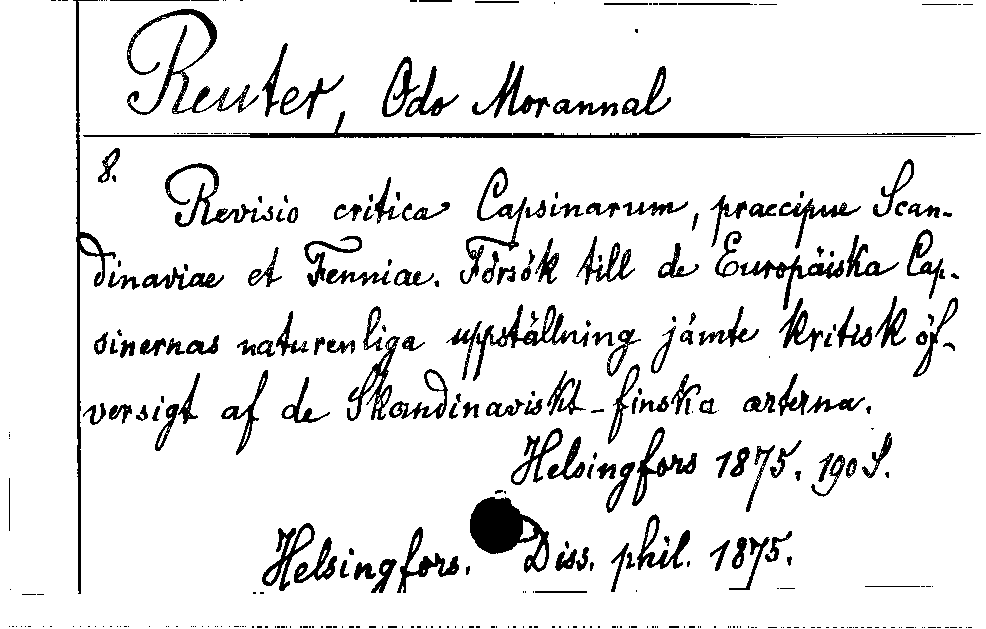 Reuter, Odo Morannal
8.
Revisio critica Capsinarum, praecipue Scan-
dinaviae et Fenniae. Försök till de Europäiska Cap-
sinernas naturenliga uppställning jämte kritisk öf-
versigt af de Skandinaviskt-finska arterna.
Helsingfors 1875. 190 S.
Helsingfors. Diss. phil. 1875.